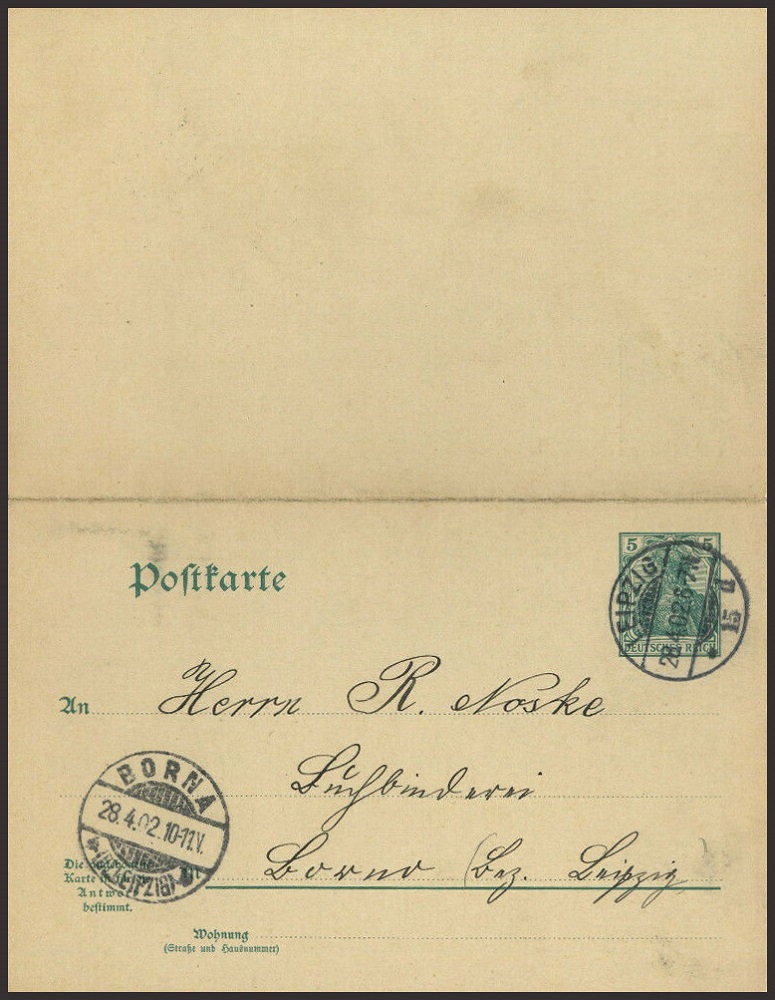 Postkarte
5 5
DEUTSCHES REICH
LEIPZIG
28.4.02.6-7N.
15
An Herrn R. Noske
Buchbinderei
in Borna (Bez. Leipzig
BORNA
28.4.02.10-11V.
(BZ. LEIPZIG)
Die
Karte ist zur
Antwort
bestimmt.
Wohnung
(Straße und Hausnummer)